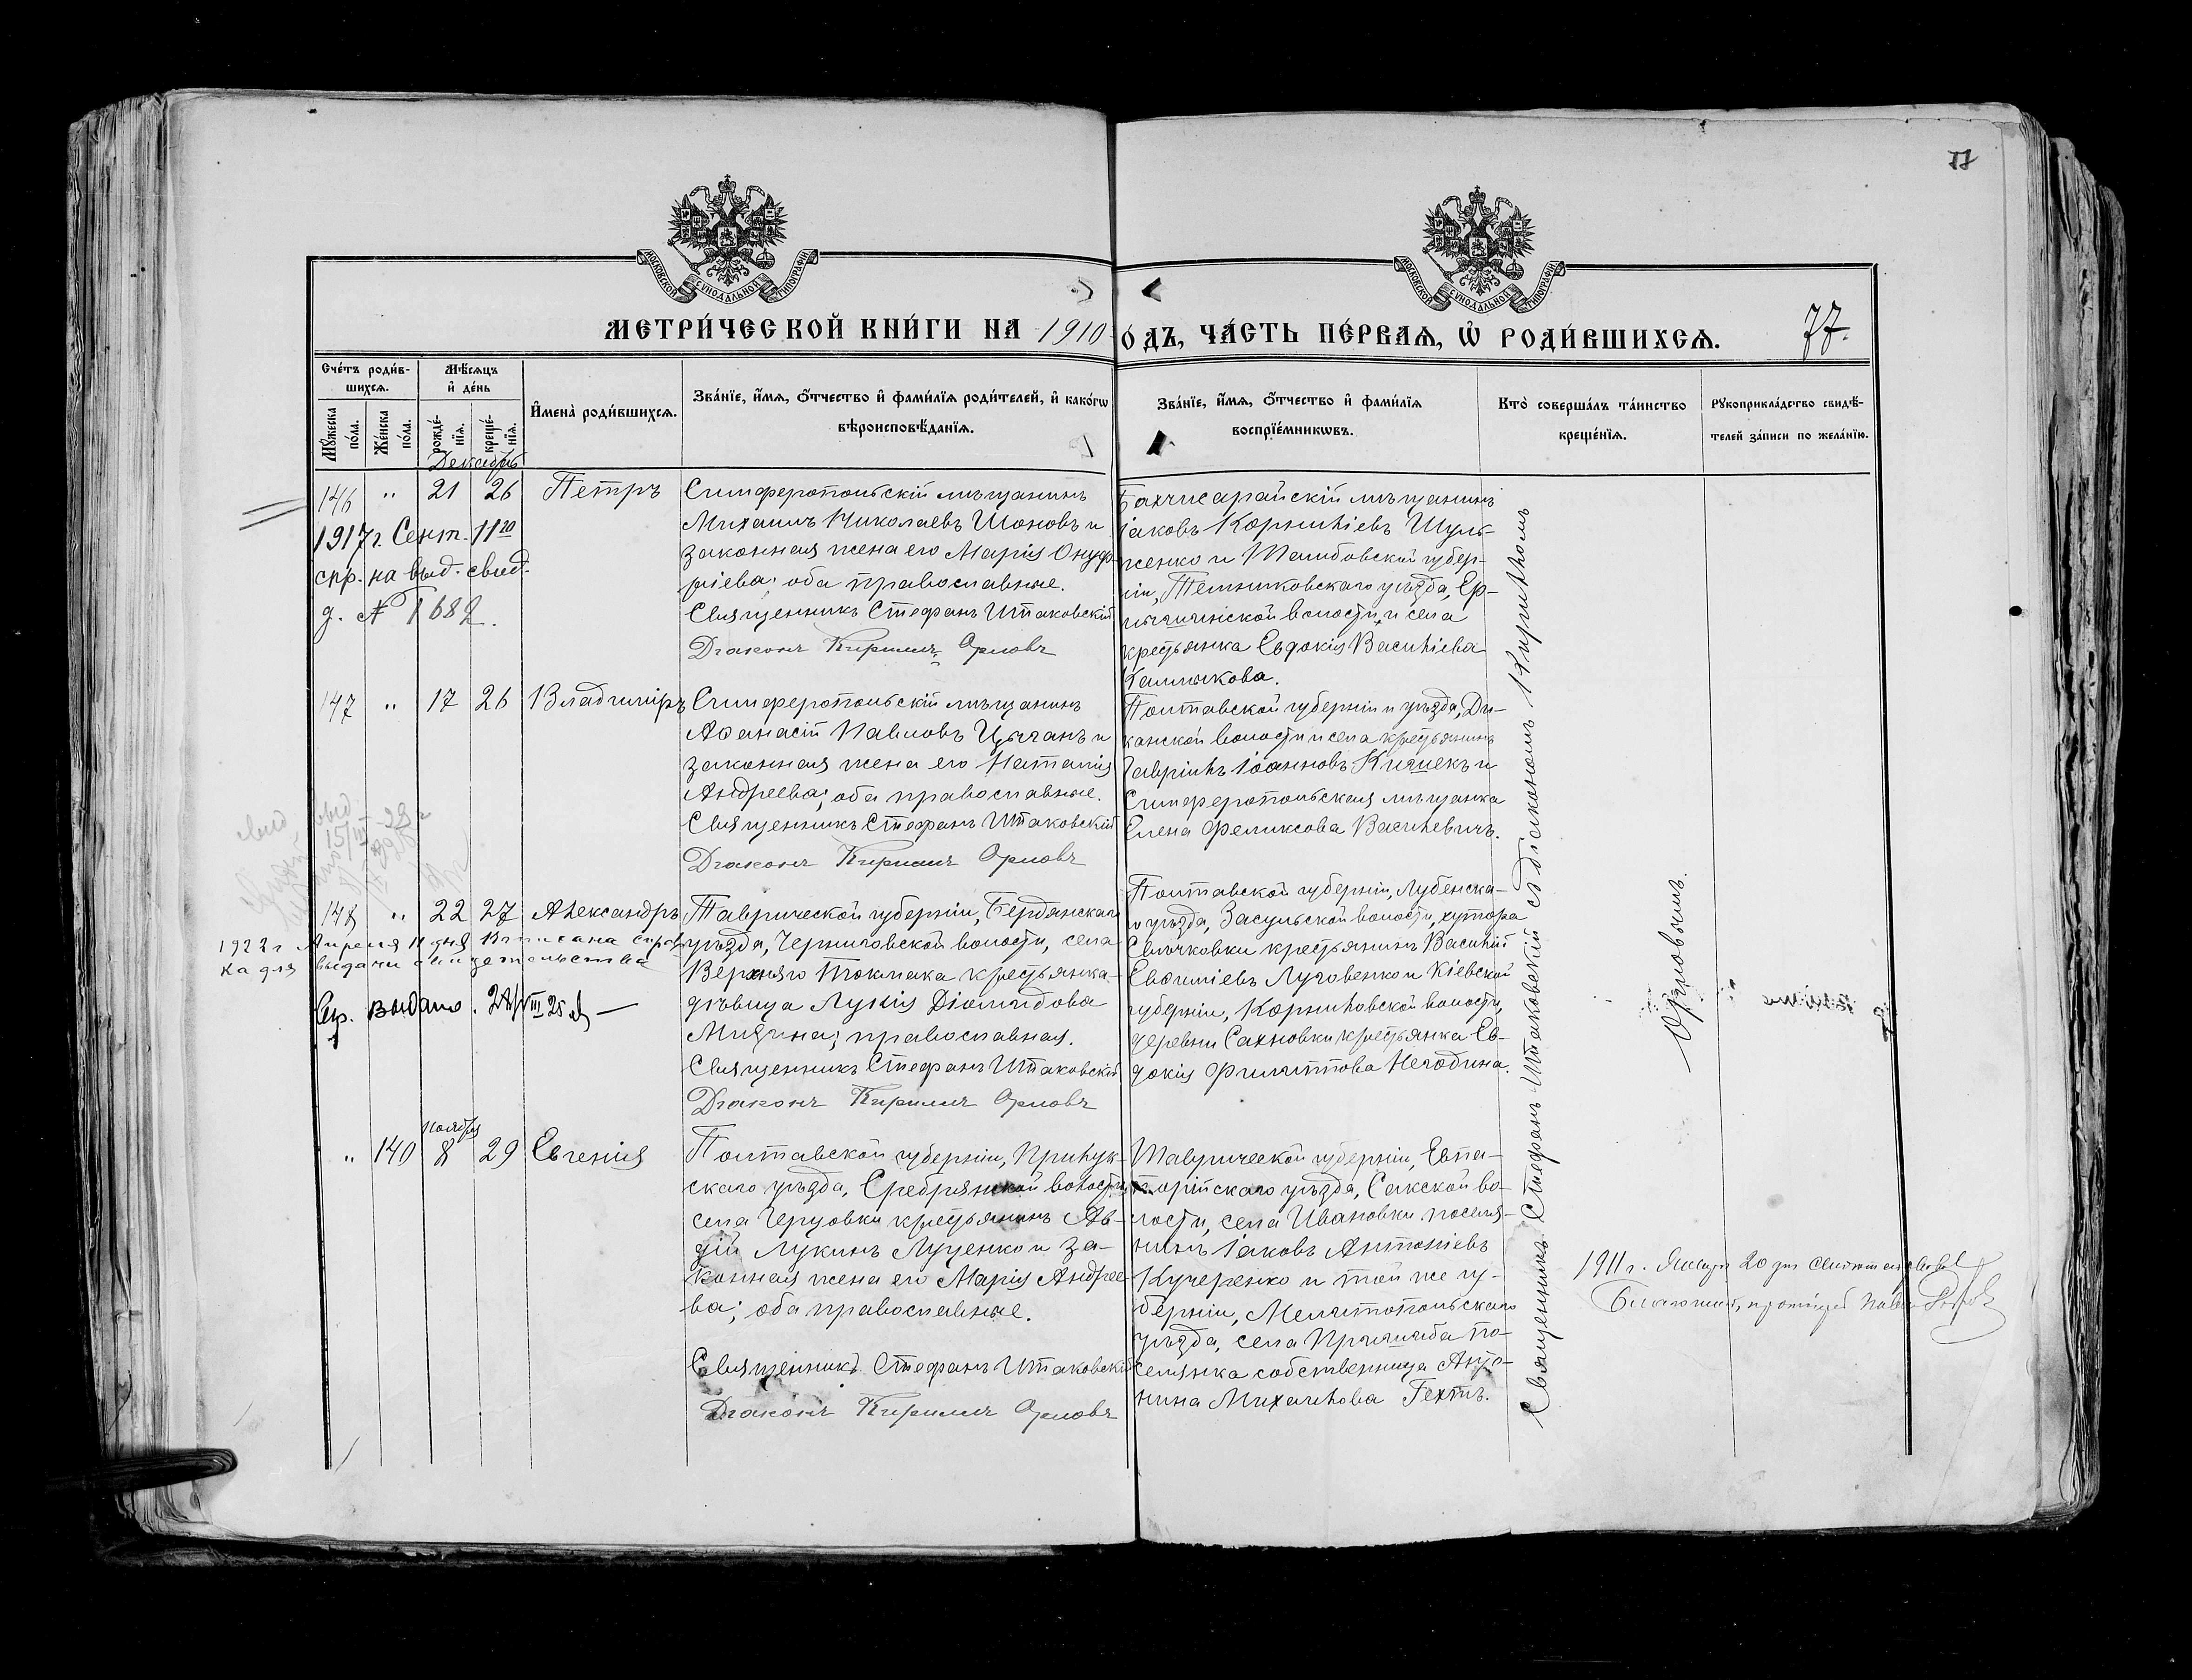 77
МОСКОВСКОЙ СѴНОДАЛЬНОЙ ТИПОГРАФІИ
МОСКОВСКОЙ СѴНОДАЛЬНОЙ ТИПОГРАФІИ
МЕТРИ́ЧЕСКОЙ КНИ́ГИ НА 1910 О́ДЪ, ЧА́СТЬ ПЕ́РВАЯ, Ѡ҆ РОДИ́ВШИХСѦ. 77.
Сче́тъ роди́в-
шихсѧ.
Мꙋ́жеска по́ла.
Же́нска по́ла.
Мѣ́сѧцъ
и҆ де́нь
рожде́-
нїѧ.
креще́-
нїѧ.
И҆мена̀ роди́вшихсѧ.
Зва́нїе, и҆́мѧ, ѻ҆́тчество и҆ фами́лїѧ роди́телей, и҆ како́гѡ
вѣроисповѣ́данїѧ.
Зва́нїе, и҆́мѧ, ѻ҆́тчество и҆ фами́лїѧ
воспрїе́мникѡвъ.
Кто̀ соверша́лъ та́инство
креще́нїѧ.
Рꙋкоприкла́дство свидѣ́-
телей за́писи по жела́нїю.
Декабрь
146 " 21 26 Петръ
1917 г. Сент. 11 20
спр. на выд. свид.
д. № 1682.
Симферопольскій мѣщанинъ
Михаилъ Николаевъ Шоновъ и
законная жена его Марія Онуф-
ріева; оба православные.
Священникъ Стефанъ Штаковскій
Діаконъ Кириллъ Орловъ
Бахчисарайскій мѣщанинъ
Іаковъ Корниліевъ Шуль-
женко и Тамбовской губер-
ніи, Темниковскаго уѣзда, Ер-
волости и села
крестьянка Евдокія Василіева
Калмыкова.
147 " 17 26 Владиміръ
Симферопольскій мѣщанинъ
Аѳанасій Павловъ Цыганъ и
законная жена его Наталія
Андреева; оба православные.
Священникъ Стефанъ Штаковскій
Діаконъ Кириллъ Орловъ
Полтавской губерніи и уѣзда, Ди-
канской волости и села крестьянинъ
Гавріилъ Іоанновъ и
Симферопольская мѣщанка
Елена Феликсова Василевичъ.
148 " 22 27 Александръ
1922 г Апреля 11 дня Выписана справ
ка для выдачи свидетельства
Спр. выдано. 28/VIII 25
Таврической губерніи, Бердянскаго
уѣзда, Черниговской волости, села
Верхняго Токмака крестьянка-
дѣвица Лукія Діомидова
Мизина; православная.
Священникъ Стефанъ Штаковскій
Діаконъ Кириллъ Орловъ
Полтавской губерніи, Лубенска-
го уѣзда, Засульской волости, хутора
Свѣчковки крестьянинъ Василій
Евѳиміевъ Луговенко и Кіевской
губерніи, Корниловской волости,
деревни Сахновки крестьянка Ев-
докія Филиппова Негодина.
Ноября
" 140 8 29 Евгенія
Полтавской губерніи, Прилук-
скаго уѣзда, Сребрянской волости,
села крестьянинъ Ав-
дій Лукинъ Луценко и за-
конная жена его Марія Андрее-
ва; оба православные.
Священникъ Стефанъ Штаковскій
Діаконъ Кириллъ Орловъ
Таврической губерніи, Евпа-
торійскаго уѣзда, Сакской во-
лости, села Ивановки поселя-
нинъ Іаковъ Антоніевъ
Кучеренко и той же гу-
берніи, Мелитопольскаго
уѣзда, села Пришиба по-
селянка собственница Анто-
нина Михаилова Гехтъ.
Священникъ Стефанъ Штаковскій съ діакономъ Кирилломъ
Орловымъ.
1911 г. Января 20 дня
Благочинный, протоіерей